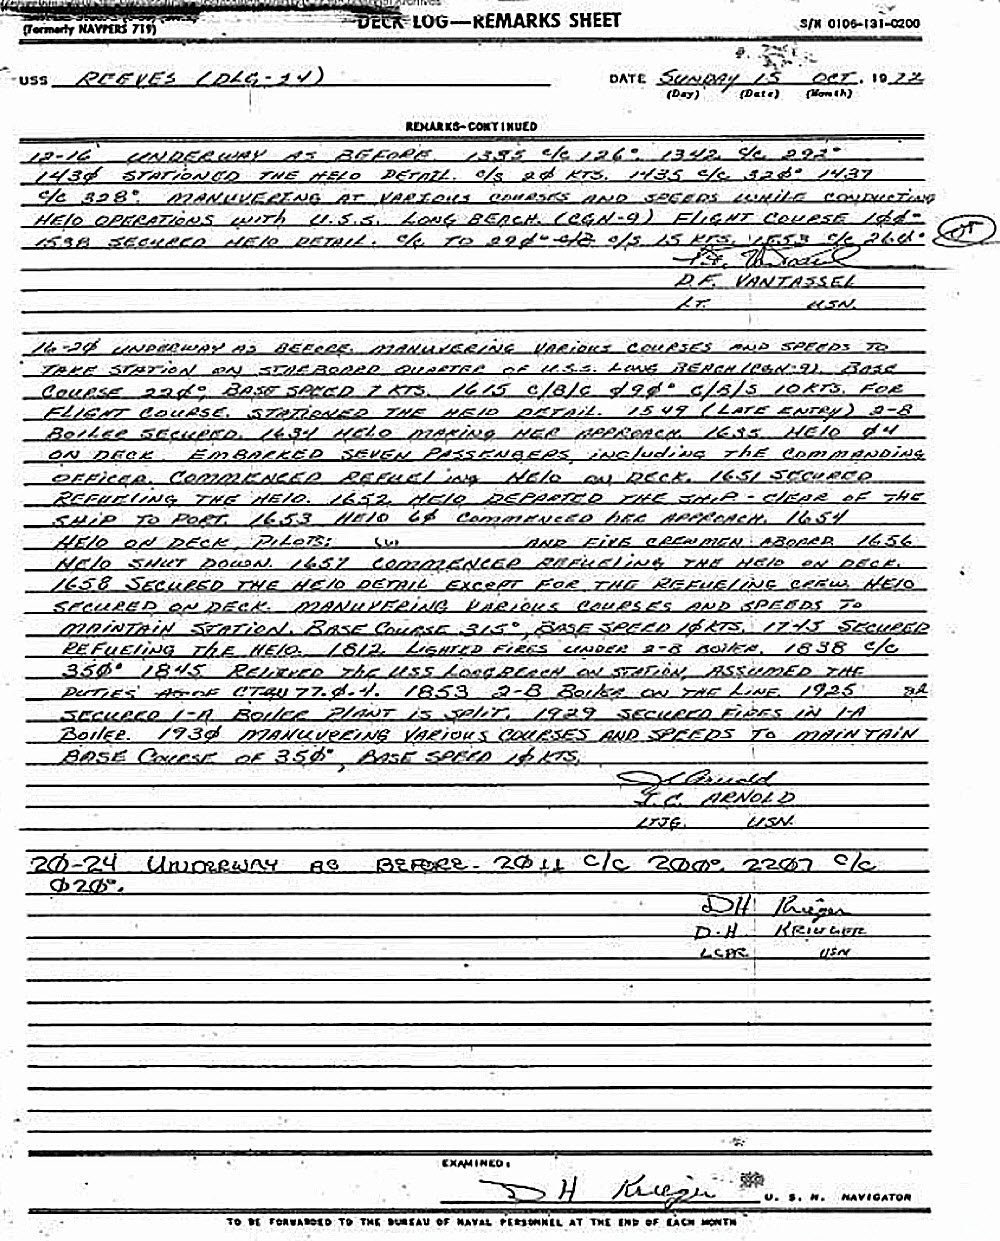 (Formerly NAVPERS 719)
DECK LOG—REMARKS SHEET
S/N 0106-131-0200
USS REEVES (DLG-24)
DATE SUNDAY 15 OCT, 1972
(Day) (Date) (Month)
REMARKS-CONTINUED
12-16 UNDERWAY AS BEFORE. 1335 c/c 126°. 1342 c/c 292°
143Ø STATIONED THE HELO DETAIL. c/s 2Ø KTS. 1435 c/c 32Ø° 1437
c/c 328°. MANUVERING AT VARIOUS COURSES AND SPEEDS WHILE CONDUCTING
HELO OPERATIONS WITH U.S.S. LONG BEACH. (CGN-9) FLIGHT COURSE 1ØØ°
1538 SECURED HELO DETAIL. c/c TO 29Ø° c/s 15 KTS. 1553 c/c 26Ø°
D.F. VANTASSEL
LT. USN.
16-2Ø UNDERWAY AS BEFORE. MANUVERING VARIOUS COURSES AND SPEEDS TO
TAKE STATION ON STARBOARD QUARTER OF U.S.S. LONG BEACH (CGN-9). BASE
COURSE 22Ø°, BASE SPEED 7 KTS. 1615 C/B/C Ø9Ø° C/B/S 10 KTS. FOR
FLIGHT COURSE. STATIONED THE HELO DETAIL. 1549 (LATE ENTRY) 2-B
BOILER SECURED. 1634 HELO MAKING HER APPROACH. 1635 HELO Ø4
ON DECK EMBARKED SEVEN PASSENGERS, including THE COMMANDING
OFFICER. COMMENCED REFUELING HELO ON DECK. 1651 SECURED
REFUELING THE HELO. 1652 HELO DEPARTED THE SHIP - CLEAR OF THE
SHIP TO PORT. 1653 HELO 6Ø COMMENCED HER APPROACH. 1654
HELO ON DECK, PILOTS; AND FIVE CREWMEN ABOARD 1656
HELO SHUT DOWN. 1657 COMMENCED REFUELING THE HELO ON DECK.
1658 SECURED THE HELO DETAIL EXCEPT FOR THE REFUELING CREW. HELO
SECURED ON DECK. MANUVERING VARIOUS COURSES AND SPEEDS TO
MAINTAIN STATION. BASE COURSE 315°, BASE SPEED 1Ø KTS. 1745 SECURED
REFUELING THE HELO. 1812 LIGHTED FIRES UNDER 2-B BOILER. 1838 C/C
35Ø° 1845 RELIEVED THE USS LONG BEACH ON STATION, ASSUMED THE
DUTIES AS OF CTGU 77.Ø.4. 1853 2-B BOILER ON THE LINE. 1925
SECURED 1-A BOILER PLANT IS SPLIT. 1929 SECURED FIRES IN 1-A
BOILER. 193Ø MANUVERING VARIOUS COURSES AND SPEEDS TO MAINTAIN
BASE COURSE OF 35Ø°, BASE SPEED 1Ø KTS.
J.C. ARNOLD
LTJG. USN.
2Ø-24 UNDERWAY AS BEFORE. 2Ø11 C/C 2ØØ°. 22Ø7 C/C
Ø2Ø°.
DH Krieger
D.H. KRIEGER
LCDR USN
EXAMINED:
D H Krieger U. S. N. NAVIGATOR
TO BE FORWARDED TO THE BUREAU OF NAVAL PERSONNEL AT THE END OF EACH MONTH